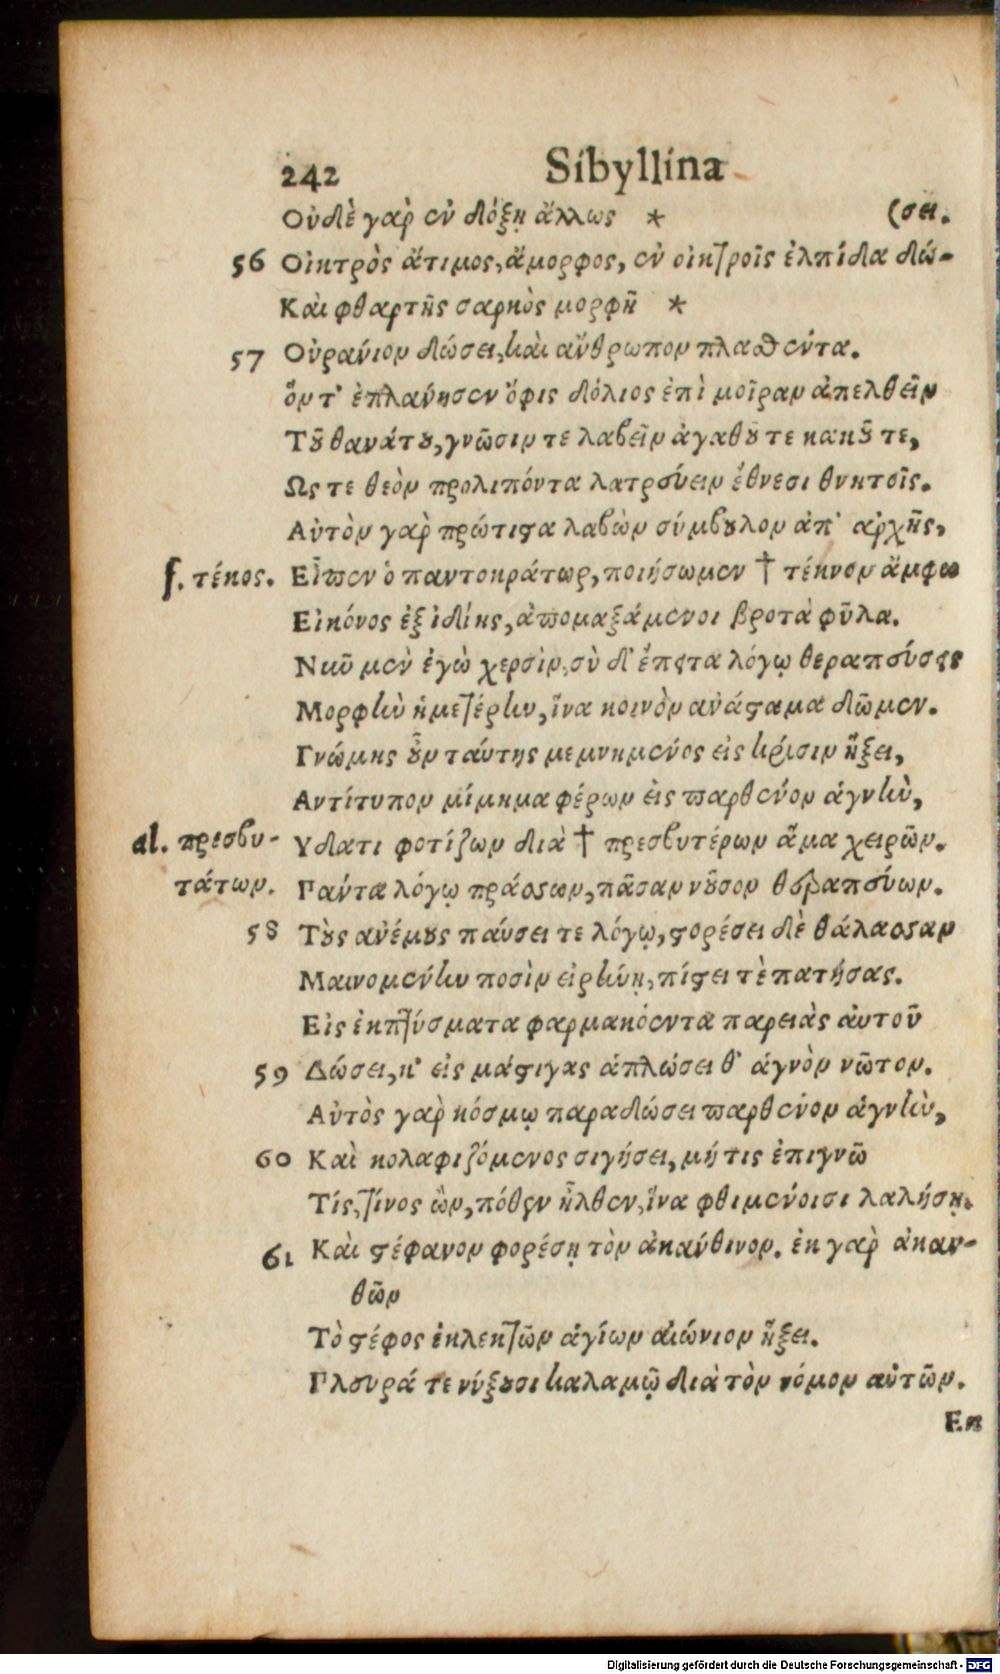 242 Sibyllina
Οὐδὲ γαρ ἐν δόξῃ ἄλλως * (σει.
56 Οἰκτρὸς ἄτιμος, ἄμορφος, ἐν οἰκτροῖς ἐλπίδα δώ-
Καὶ φθαρτῆς σαρκὸς μορφῇ *
57 Οὐράνιον δώσει, καὶ ἄνθρωπον πλασθέντα.
ὅν τ' ἐπλάνησεν ὄφις δόλιος ἐπὶ μοῖραν ἀπελθεῖν
Τοῦ θανάτου, γνῶσιν τε λαβεῖν ἀγαθοῦ τε κακοῦ τε,
Ως τε θεὸν προλιπόντα λατρεύειν ἔθνεσι θνητοῖς.
Αὐτὸν γαρ πρώτιστα λαβὼν σύμβουλον ἀπ' αρχῆς,
f. τέκος. Εἶπεν ὁ παντοκράτωρ, ποιήσωμεν † τέκνον ἄμφω
Εἰκόνος ἐξ ἰδίης, ἀπομαξάμενοι βροτὰ φῦλα.
Νῦν μὲν ἐγὼ χερσὶν, σὺ δ' ἔπειτα λόγῳ θεραπεύσεις
Μορφὴν ἡμετέρην, ἵνα κοινὸν ανάσταμα δῶμεν.
Γνώμης οὖν ταύτης μεμνημένος εἰς κρίσιν ἥξει,
Αντίτυπον μίμημα φέρων εἰς παρθένον ἁγνὴν,
al. πρεσβυ- Υδατι φοτίζων διὰ † πρεσβυτέρων ἅμα χειρῶν.
τάτων. Πάντα λόγῳ πράσσων, πᾶσαν νοῦσον θεραπεύων.
58 Τοὺς ανέμους παύσει τε λόγῳ, στορέσει δὲ θάλασσαν
Μαινομένην ποσὶν εἰρήνῃ, πίστει τὲ πατήσας.
Εἰς ἐκπτύσματα φαρμακόεντα παρειὰς ἀυτοῦ
59 Δώσει, κ' εἰς μάστιγας ἁπλώσει θ' ἁγνὸν νῶτον.
Αὐτὸς γαρ κόσμῳ παραδώσει παρθένον ἁγνὴν,
60 Καὶ κολαφιζόμενος σιγήσει, μή τις ἐπιγνῶ
Τίς, τίνος ὢν, πόθεν ἦλθεν, ἵνα φθιμένοισι λαλήσῃ.
61 Καὶ στέφανον φορέσῃ τὸν ἀκάνθινον. ἐκ γαρ ἀκαν-
θῶν
Τὸ στέφος ἐκλεκτῶν ἁγίων αἰώνιον ἥξει.
Πλευρά τε νύξουσι καλαμῷ διὰ τὸν νόμον αὐτῶν.
Εκ
Digitalisierung gefördert durch die Deutsche Forschungsgemeinschaft - DFG